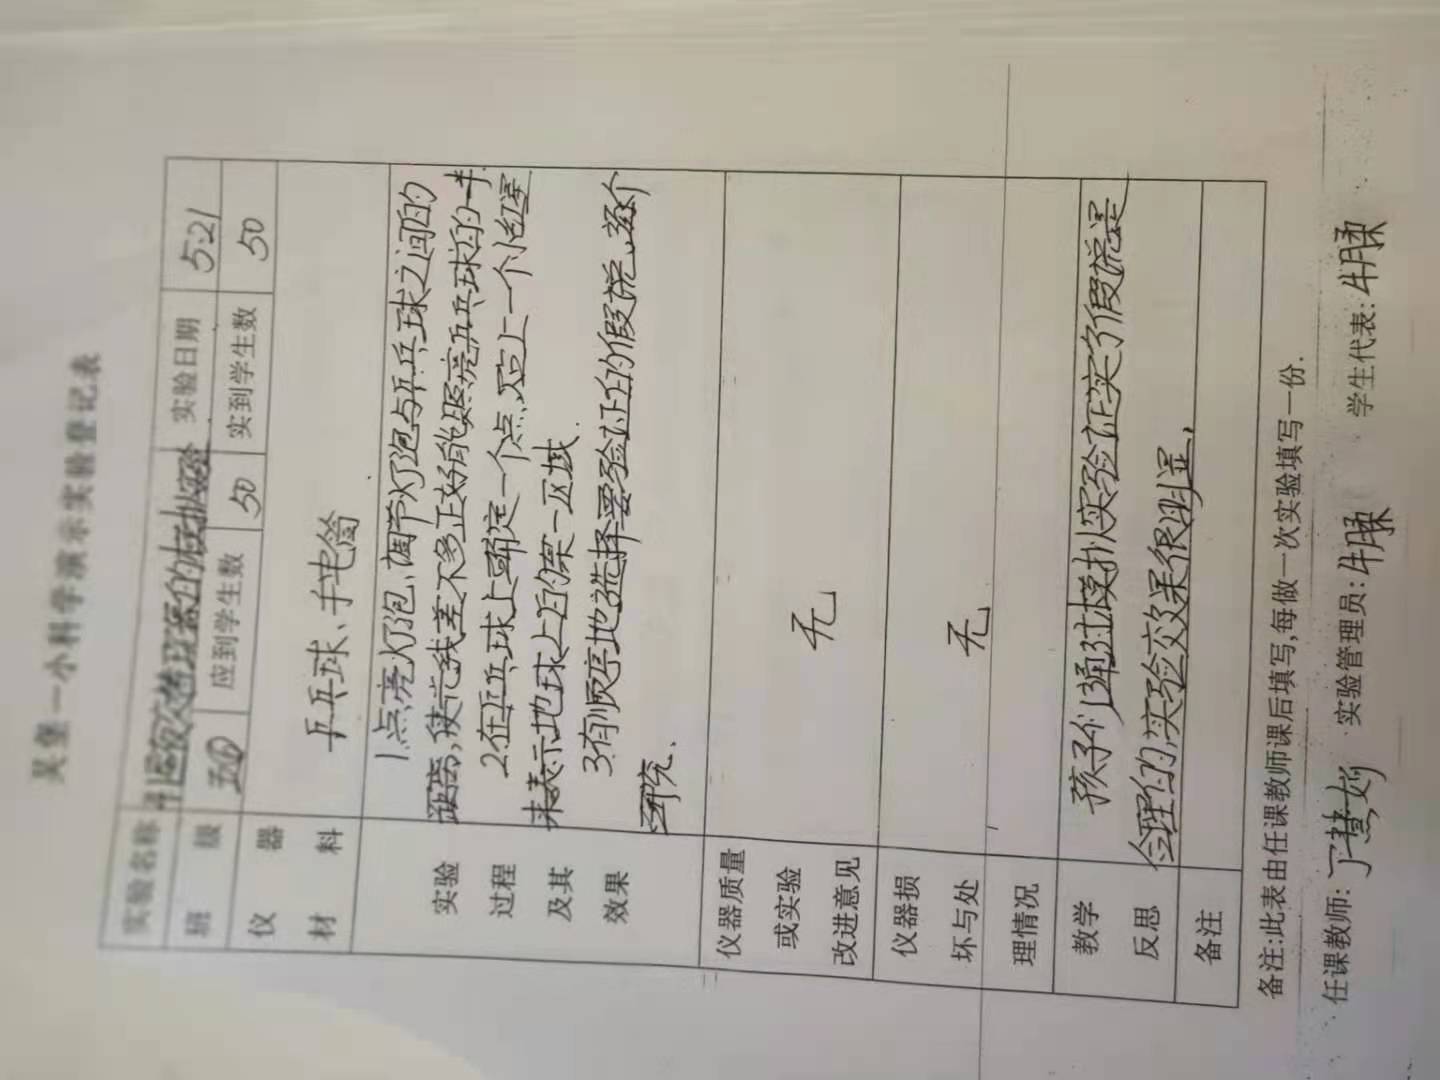 吴堡一小科学演示实验登记表
实验名称 昼夜交替现象的模拟实验 实验日期 5.21
班级 应到学生数 50 实到学生数 50
仪器材料 乒乓球、手电筒
实验过程及其效果
1.点亮灯泡,调节灯泡与乒乓球之间的
距离,使光线差不多正好能照亮乒乓球的一半.
2.在乒乓球上确定一个点,点上一个小红星
来表示地球上的某一区域.
3.有顺序地选择要验证的假说,逐个
研究.
仪器质量或实验改进意见 无
仪器损坏与处理情况 无
教学反思 孩子们通过模拟实验证实了假说是
合理的,实验效果很明显.
备注
备注:此表由任课教师课后填写,每做一次实验填写一份.
任课教师: 丁慧 实验管理员: 学生代表: